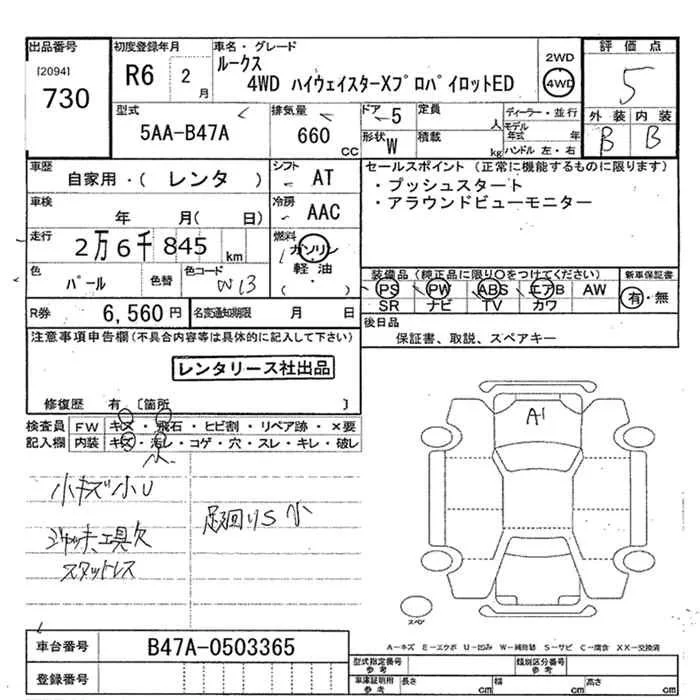 出品番号 初度登録年月 車名・グレード 2WD 評価点
[2094] R6 2月 ルークス 4WD
730 4WD ハイウェイスターXプロパイロットED 5
型式 排気量 ドア 5 定員 人 ディーラー・並行 外装 内装
5AA-B47A 660 CC 形状 W 積載 kg モデル年式 年 B B
ハンドル 左・右
車歴 シフト セールスポイント (正常に機能するものに限ります)
自家用・( レンタ ) AT ・プッシュスタート
車検 冷房 ・アラウンドビューモニター
年 月( 日) AAC
走行 燃料
2万6千845 km ガソリン
色 色替 色コード 軽油 装備品(純正品に限り○をつけてください) 新車保証書
パール W13 ・( ) PS PW ABS エアB AW 有・無
SR ナビ TV カワ
R券 6,560円 名変通知期限 月 日 後日品
注意事項申告欄(不具合内容等は具体的に記入して下さい) 保証書、取説、スペアキー
レンタリース社出品
修復歴 有 〔箇所 〕
検査員 FW キズ・飛石・ヒビ割・リペア跡・×要
記入欄 内装 キズ・汚レ・コゲ・穴・スレ・キレ・破レ
小
A1
小キズ小U
足廻りS小
ジャッキ、工具欠
スタットレス
スペア
車台番号 B47A-0503365
A-キズ E-エクボ U-凹み W-補修跡 S-サビ C-腐食 XX-交換済
登録番号 型式指定番号 参考 類別区分番号 参考
車庫証明用 参考 長さ cm 幅 cm 高さ cm